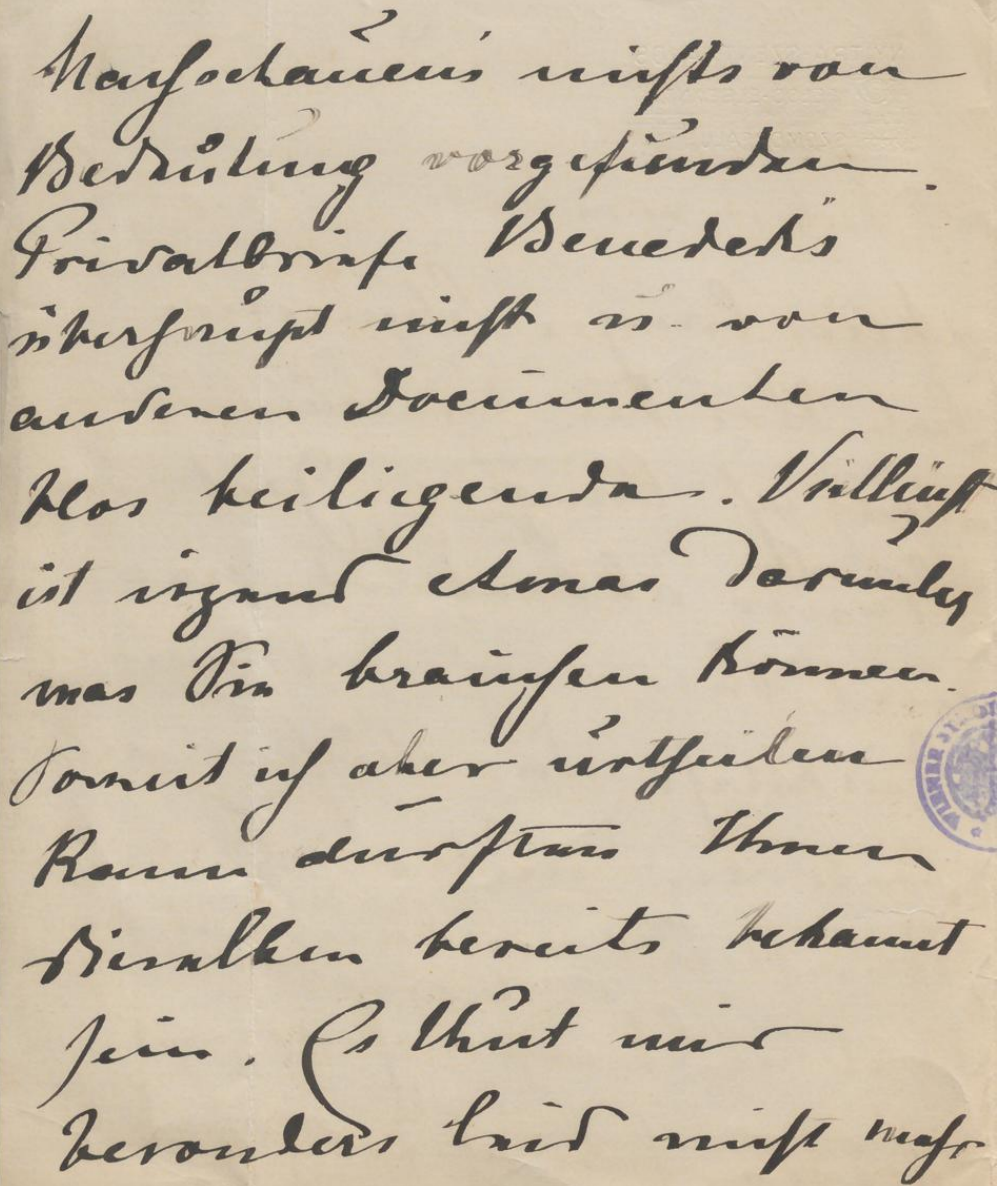 Nachschauens nichts von
Bedeutung vorgefunden.
Privatbriefe Benedeks
überhaupt nicht u. von
anderen Documenten
blos beiliegende. Vielleicht
ist irgend etwas darunter
was Sie brauchen können.
Soweit ich aber urtheilen
kann dürften Ihnen
dieselben bereits bekannt
sein. Es thut mir
besonders leid nicht mehr
WIENER ST